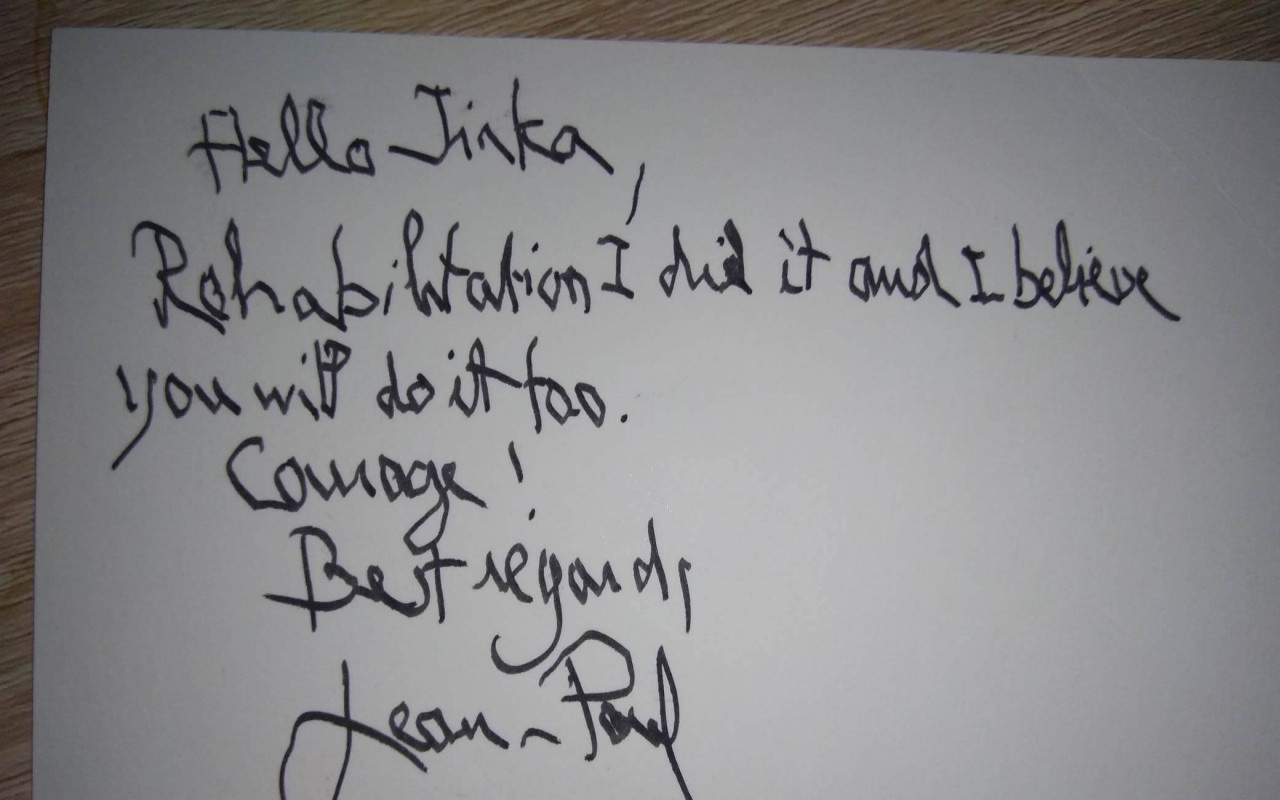 Hello Jinka,
Rehabilitation I did it and I believe
you will do it too.
Courage !
Best regards
Jean-Paul